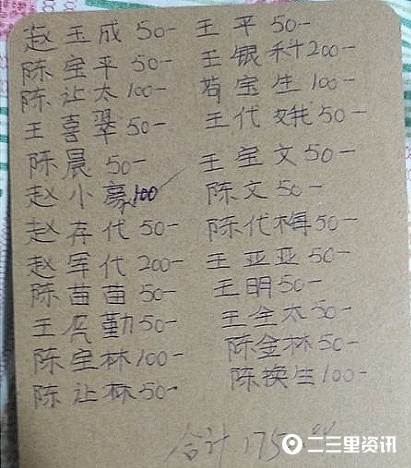 赵玉成 50-
陈宝平 50-
陈让太 100-
王喜翠 50-
陈晨 50-
赵小豪 100
赵存代 50-
赵军代 200-
陈苗苗 50-
王虎勤 50-
陈宝林 100-
陈让林 50-
王平 50-
王银科 200-
苟宝生 100-
王代娥 50-
王宝文 50-
陈文 50-
陈代梅 50-
王亚亚 50-
王明 50-
王全太 50-
陈金林 50-
陈换生 100-
合计 1750
二三里资讯